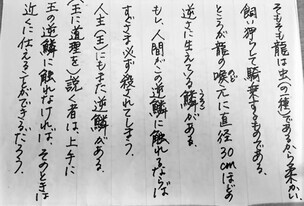 そもそも龍は虫(の一種)であるから柔かい
飼い狎らして騎乗するものである。
ところが龍の喉元に直径30cmほどの
逆さに生えている鱗がある。
もし、人間がこの逆鱗に触れるならば
すぐさま必ず殺されてしまう。
人主(王)にもまた逆鱗がある。
(王に道理を)説く者は、上手に
王の逆鱗に触れなければ、そのときは
近くに仕えることができるだろう。